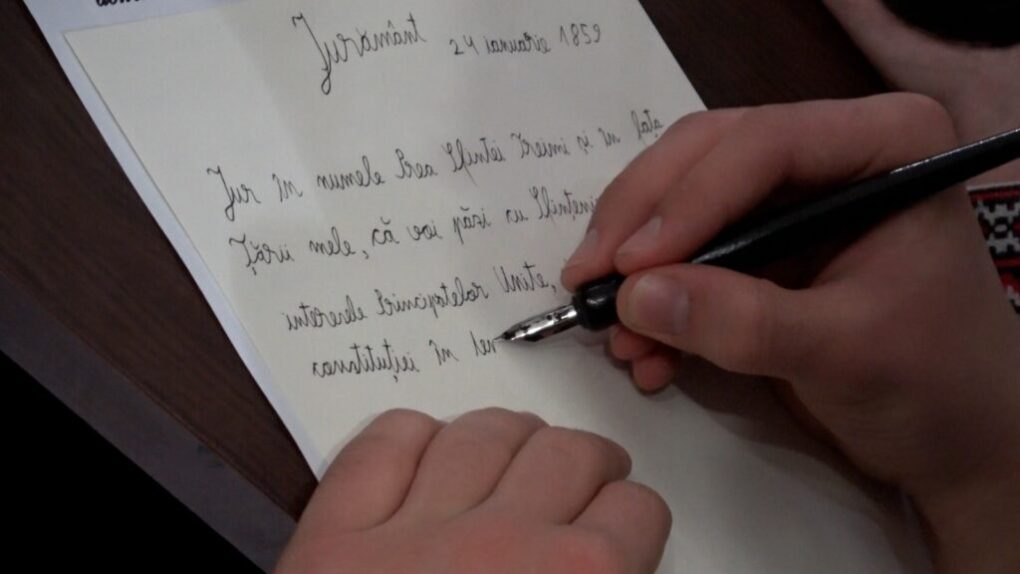 Jurământ 24 ianuarie 1859
Jur în numele Prea Sfintei Treimi și în fața
Țării mele, că voi păzi cu
interesele Principatelor Unite,
constituției în